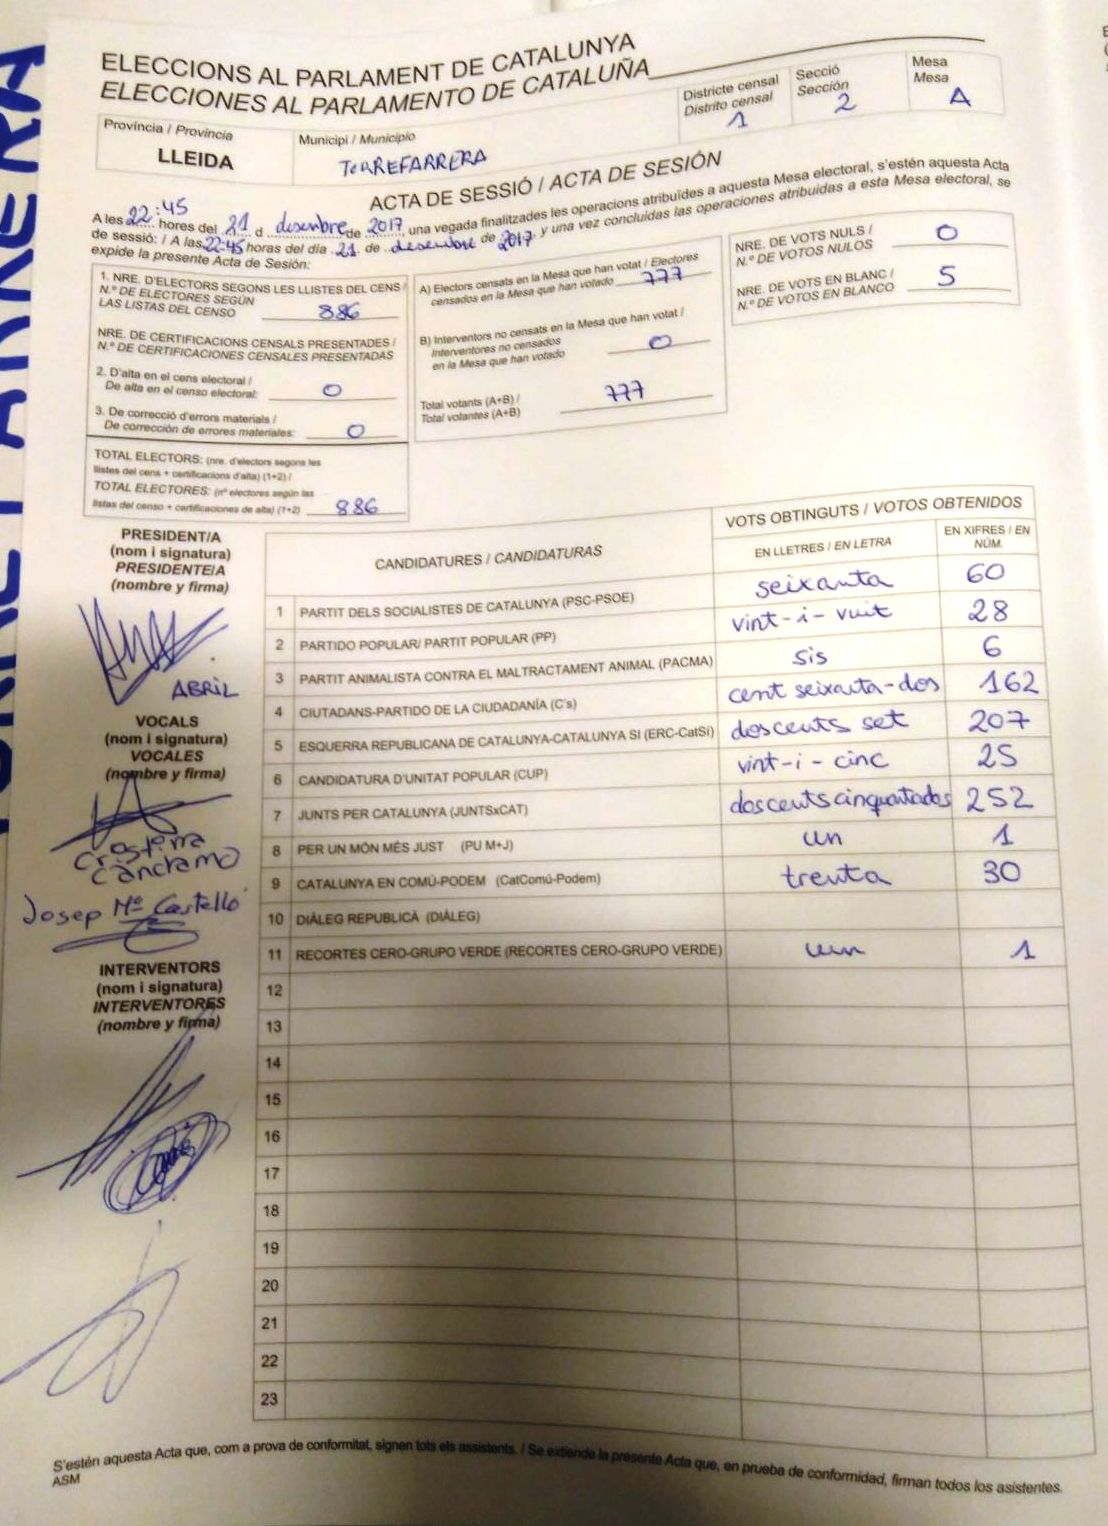 ELECCIONS AL PARLAMENT DE CATALUNYA
ELECCIONES AL PARLAMENTO DE CATALUÑA
Província / Provincia
LLEIDA
Municipi / Municipio
TORREFARRERA
Districte censal
Distrito censal
1
Secció
Sección
2
Mesa
Mesa
A
ACTA DE SESSIÓ / ACTA DE SESIÓN
A les 22:45 hores del 21 d desembre de 2017 una vegada finalitzades les operacions atribuïdes a aquesta Mesa electoral, s'estén aquesta Acta
de sessió: / A las 22:45 horas del día 21 de desembre de 2017 y una vez concluidas las operaciones atribuidas a esta Mesa electoral, se
expide la presente Acta de Sesión:
1. NRE. D'ELECTORS SEGONS LES LLISTES DEL CENS /
N.º DE ELECTORES SEGÚN
LAS LISTAS DEL CENSO 886
NRE. DE CERTIFICACIONS CENSALS PRESENTADES /
N.º DE CERTIFICACIONES CENSALES PRESENTADAS
2. D'alta en el cens electoral /
De alta en el censo electoral: 0
3. De correcció d'errors materials /
De corrección de errores materiales: 0
TOTAL ELECTORS: (nre. d'electors segons les
llistes del cens + certificacions d'alta) (1+2) /
TOTAL ELECTORES: (nº electores según las
listas del censo + certificaciones de alta) (1+2) 886
A) Electors censats en la Mesa que han votat / Electores
censados en la Mesa que han votado 777
B) Interventors no censats en la Mesa que han votat /
Interventores no censados
en la Mesa que han votado 0
Total votants (A+B) /
Total votantes (A+B) 777
NRE. DE VOTS NULS /
N.º DE VOTOS NULOS 0
NRE. DE VOTS EN BLANC /
N.º DE VOTOS EN BLANCO 5
PRESIDENT/A
(nom i signatura)
PRESIDENTE/A
(nombre y firma)
ABRIL
VOCALS
(nom i signatura)
VOCALES
(nombre y firma)
Cristina
Josep Mª Castelló
INTERVENTORS
(nom i signatura)
INTERVENTORES
(nombre y firma)
CANDIDATURES / CANDIDATURAS
VOTS OBTINGUTS / VOTOS OBTENIDOS
EN LLETRES / EN LETRA
EN XIFRES / EN NÚM.
1 PARTIT DELS SOCIALISTES DE CATALUNYA (PSC-PSOE) seixanta 60
2 PARTIDO POPULAR/ PARTIT POPULAR (PP) vint-i-vuit 28
3 PARTIT ANIMALISTA CONTRA EL MALTRACTAMENT ANIMAL (PACMA) sis 6
4 CIUTADANS-PARTIDO DE LA CIUDADANÍA (C's) cent seixanta-dos 162
5 ESQUERRA REPUBLICANA DE CATALUNYA-CATALUNYA SI (ERC-CatSí) doscents set 207
6 CANDIDATURA D'UNITAT POPULAR (CUP) vint-i-cinc 25
7 JUNTS PER CATALUNYA (JUNTSxCAT) doscents cinquantados 252
8 PER UN MÓN MÉS JUST (PU M+J) un 1
9 CATALUNYA EN COMÚ-PODEM (CatComú-Podem) trenta 30
10 DIÀLEG REPUBLICÀ (DIÀLEG)
11 RECORTES CERO-GRUPO VERDE (RECORTES CERO-GRUPO VERDE) un 1
12
13
14
15
16
17
18
19
20
21
22
23
S'estén aquesta Acta que, com a prova de conformitat, signen tots els assistents. / Se extiende la presente Acta que, en prueba de conformidad, firman todos los asistentes.
ASM